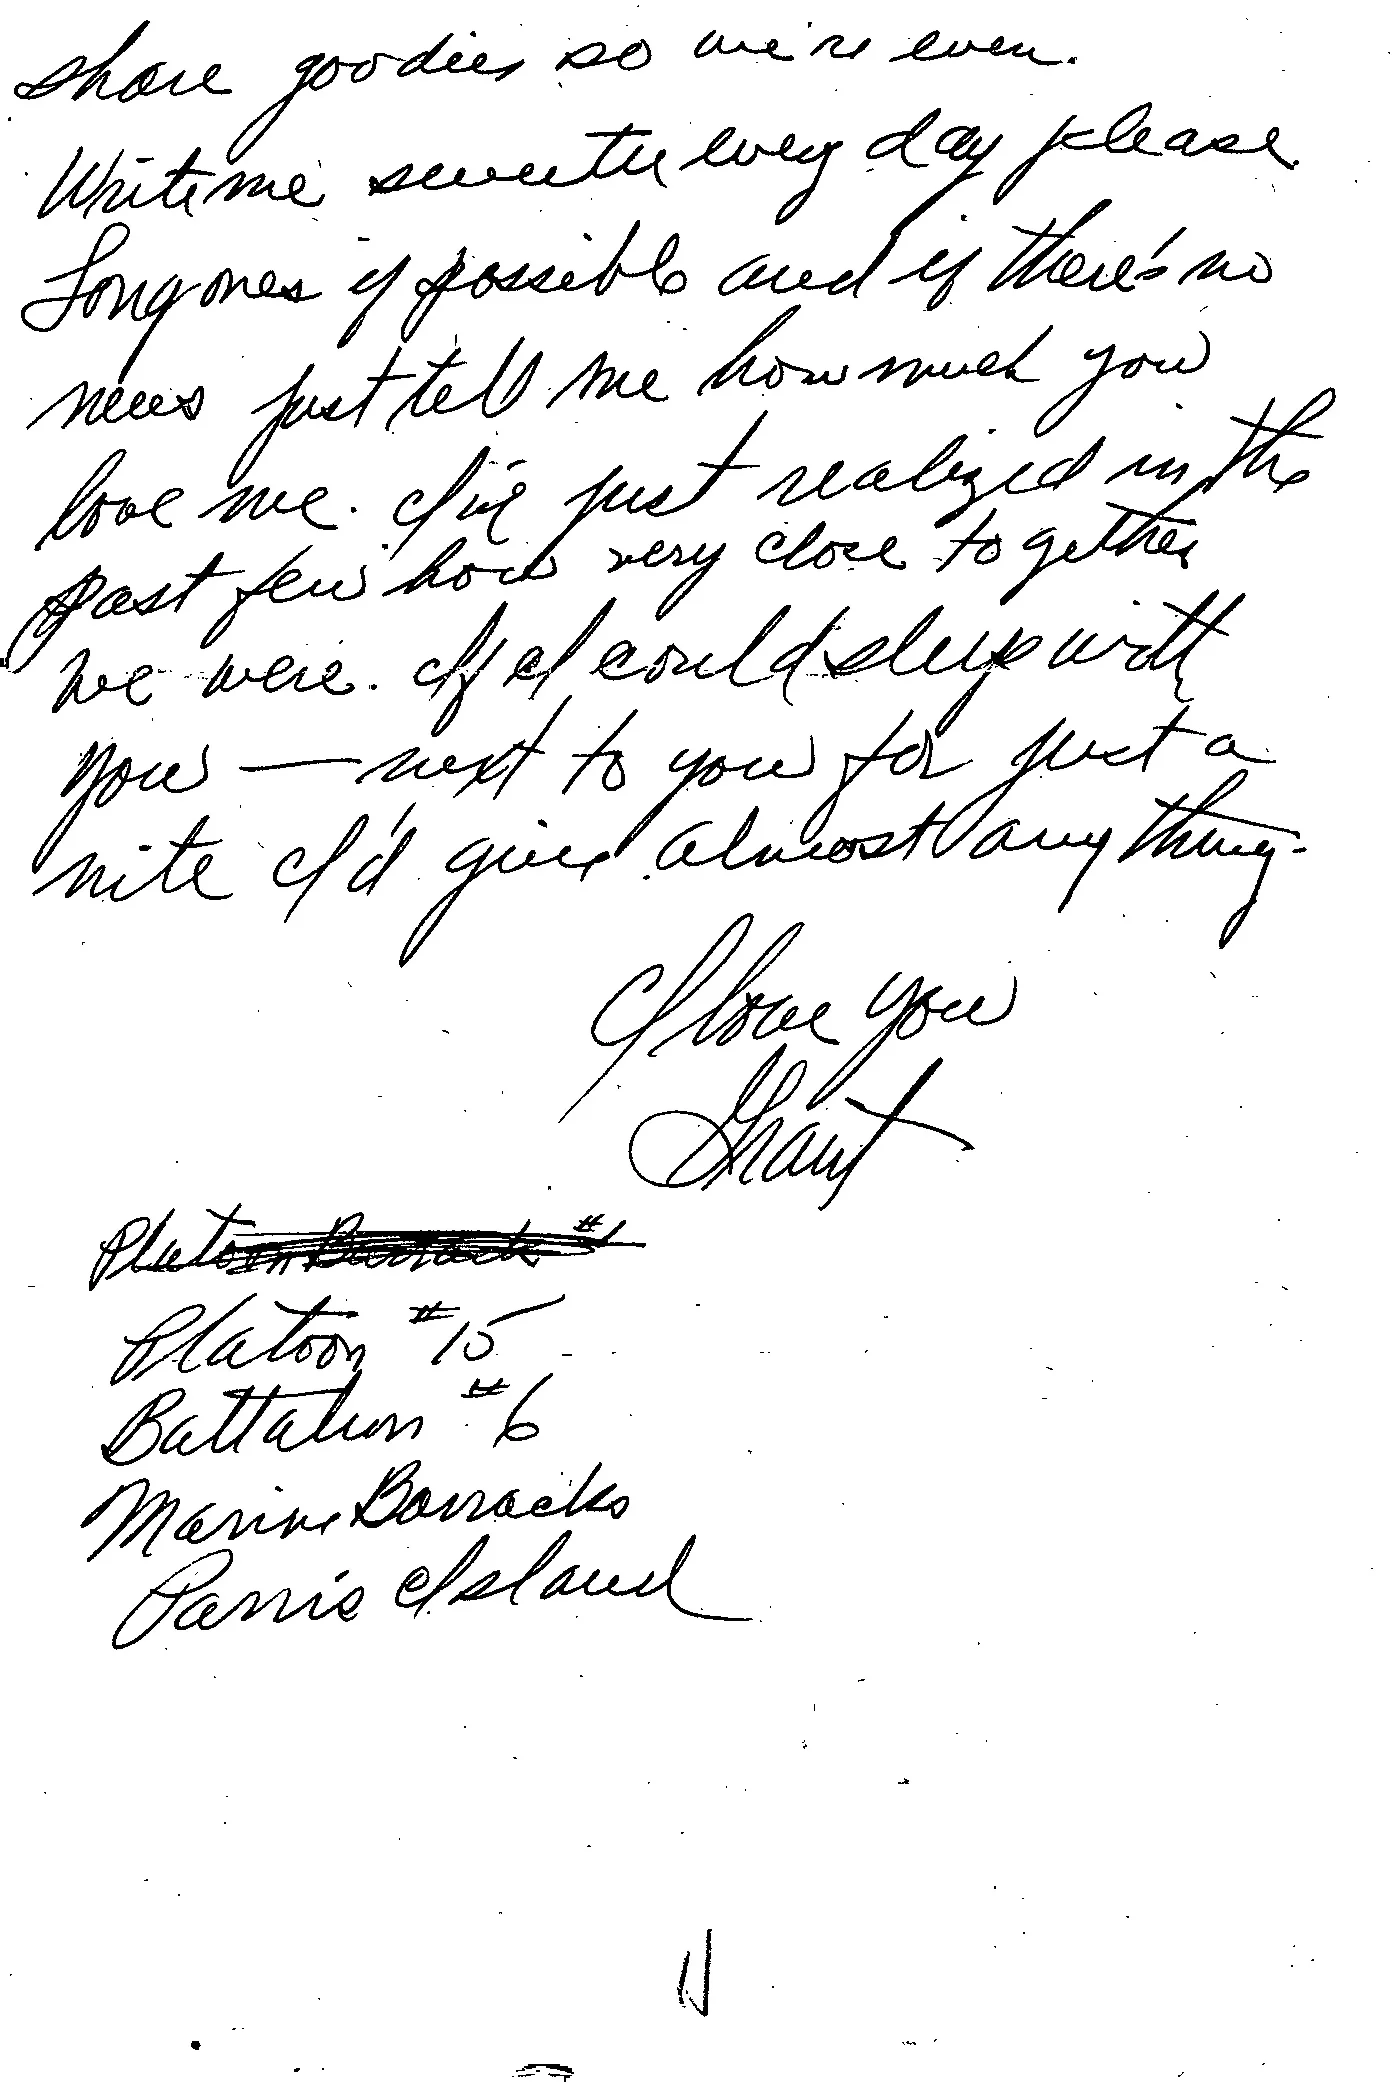 share goodies so we're even.
Write me sweetie every day please
Long ones if possible and if there's no
news just tell me how much you
love me. I've just realized in the
past few how very close together
we were. If I could sleep with
you — next to you for just a
nite I'd give almost anything.
I love you
Grant
Platoon Barrack #1
Platoon #15
Battalion #6
Marine Barracks
Parris Island